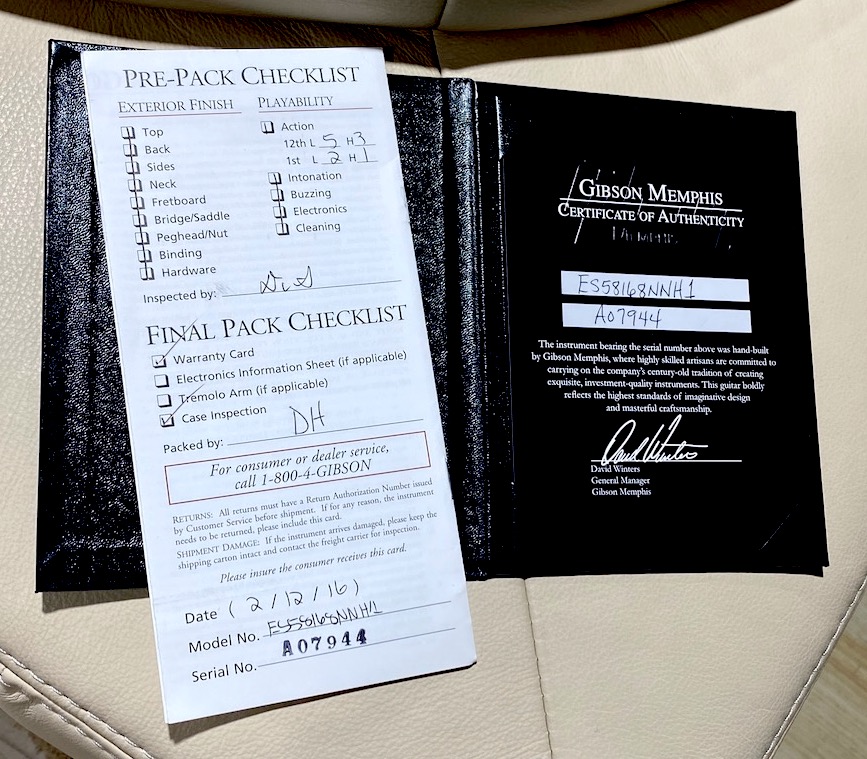 PRE-PACK CHECKLIST
EXTERIOR FINISH
Top
Back
Sides
Neck
Fretboard
Bridge/Saddle
Peghead/Nut
Binding
Hardware
PLAYABILITY
Action
12th L 5 H 3
1st L 2 H 1
Intonation
Buzzing
Electronics
Cleaning
Inspected by:
FINAL PACK CHECKLIST
Warranty Card
Electronics Information Sheet (if applicable)
Tremolo Arm (if applicable)
Case Inspection
Packed by: DH
For consumer or dealer service,
call 1-800-4-GIBSON
RETURNS: All returns must have a Return Authorization Number issued
by Customer Service before shipment. If for any reason, the instrument
needs to be returned, please include this card.
SHIPMENT DAMAGE: If the instrument arrives damaged, please keep the
shipping carton intact and contact the freight carrier for inspection.
Please insure the consumer receives this card.
Date (2/12/16)
Model No. ES58168NNH1
Serial No. A07944
GIBSON MEMPHIS
CERTIFICATE OF AUTHENTICITY
ES58168NNH1
A07944
The instrument bearing the serial number above was hand-built
by Gibson Memphis, where highly skilled artisans are committed to
carrying on the company's century-old tradition of creating
exquisite, investment-quality instruments. This guitar boldly
reflects the highest standards of imaginative design
and masterful craftsmanship.
David Winters
David Winters
General Manager
Gibson Memphis